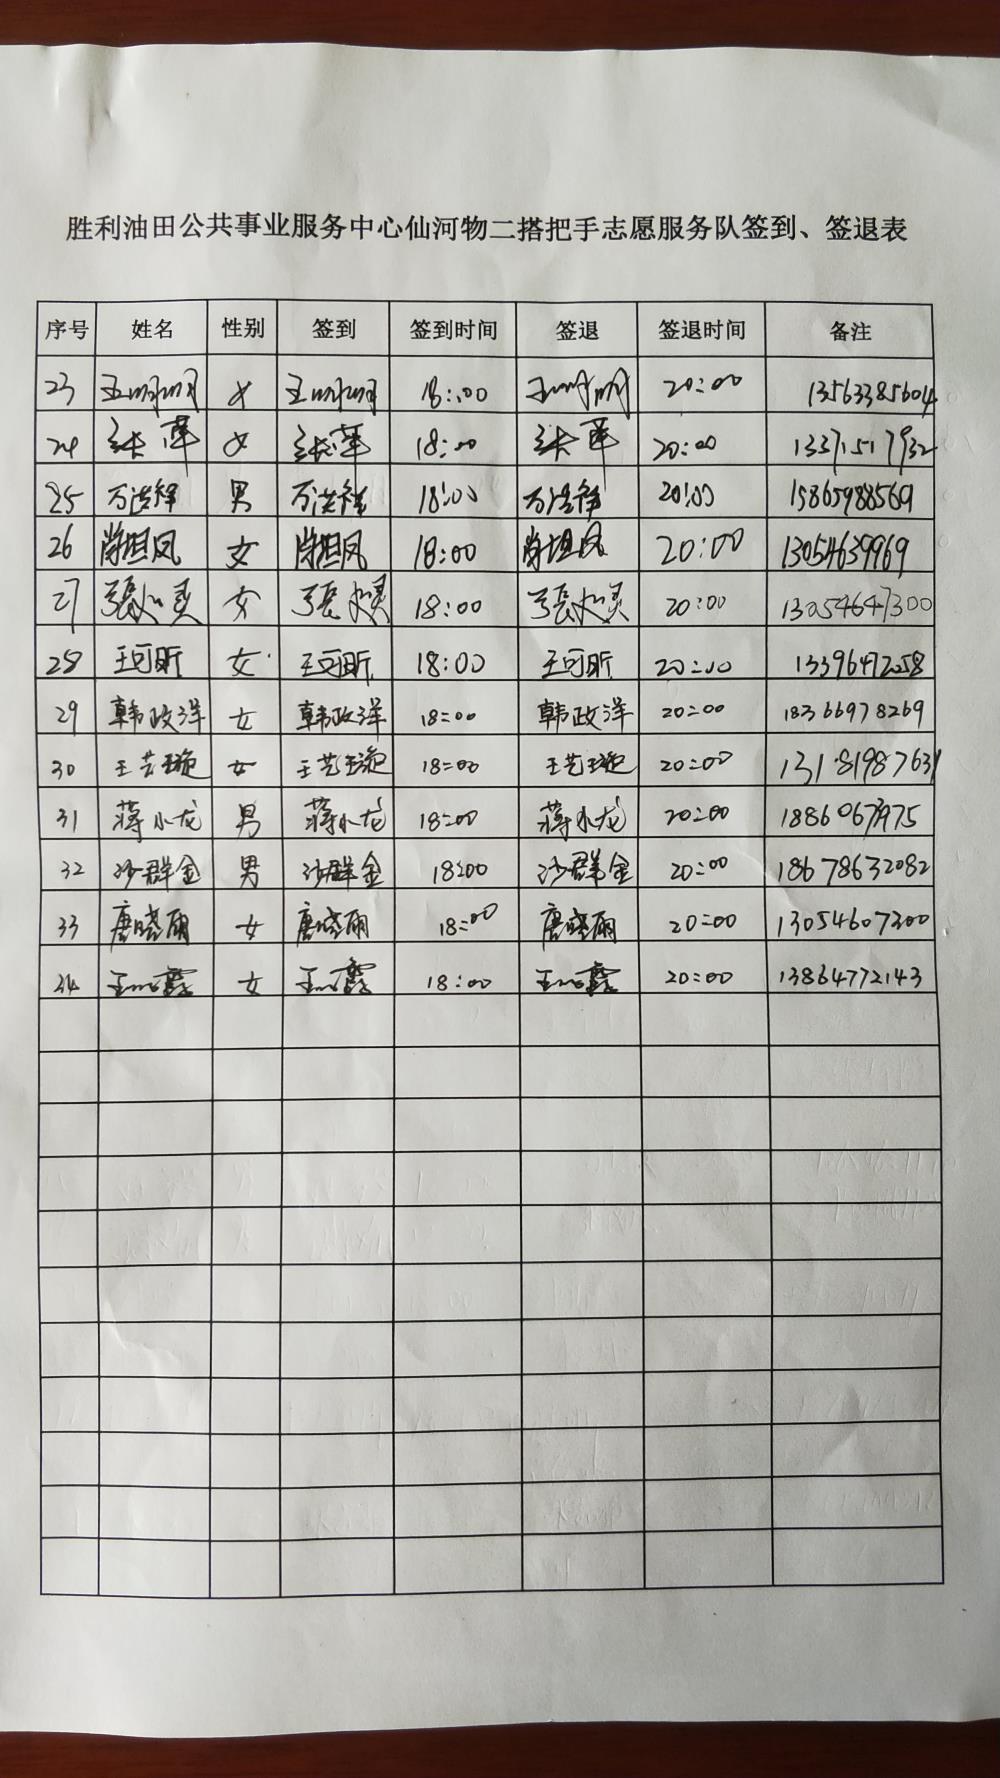 胜利油田公共事业服务中心仙河物二搭把手志愿服务队签到、签退表
序号 姓名 性别 签到 签到时间 签退 签退时间 备注
23 王明明 女 王明明 18:00 王明明 20:00 13563385604
24 张萍 女 张萍 18:00 张萍 20:00 13371517932
25 万洪祥 男 万洪祥 18:00 万洪祥 20:00 15865988569
26 肖坦凤 女 肖坦凤 18:00 肖坦凤 20:00 13054639969
27 女 18:00 20:00 13054647300
28 王可昕 女 王可昕 18:00 王可昕 20:00 13396472058
29 韩政洋 女 韩政洋 18:00 韩政洋 20:00 18366978269
30 王艺璇 女 王艺璇 18:00 王艺璇 20:00 13181987631
31 蒋小龙 男 蒋小龙 18:00 蒋小龙 20:00
32 沙群金 男 沙群金 18:00 沙群金 20:00 18678632082
33 唐晓丽 女 唐晓丽 18:00 唐晓丽 20:00 13054607300
34 女 18:00 20:00 13864772143